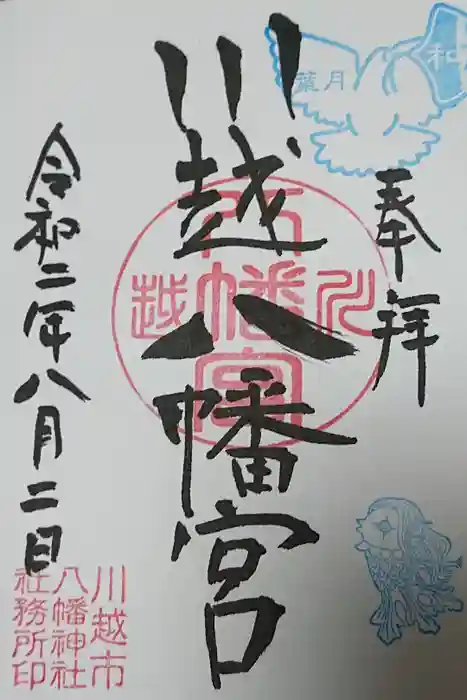 奉拝
川越八幡宮
令和二年八月二日
葉月
和
八幡宮
川
越
川越市
八幡神社
社務所印